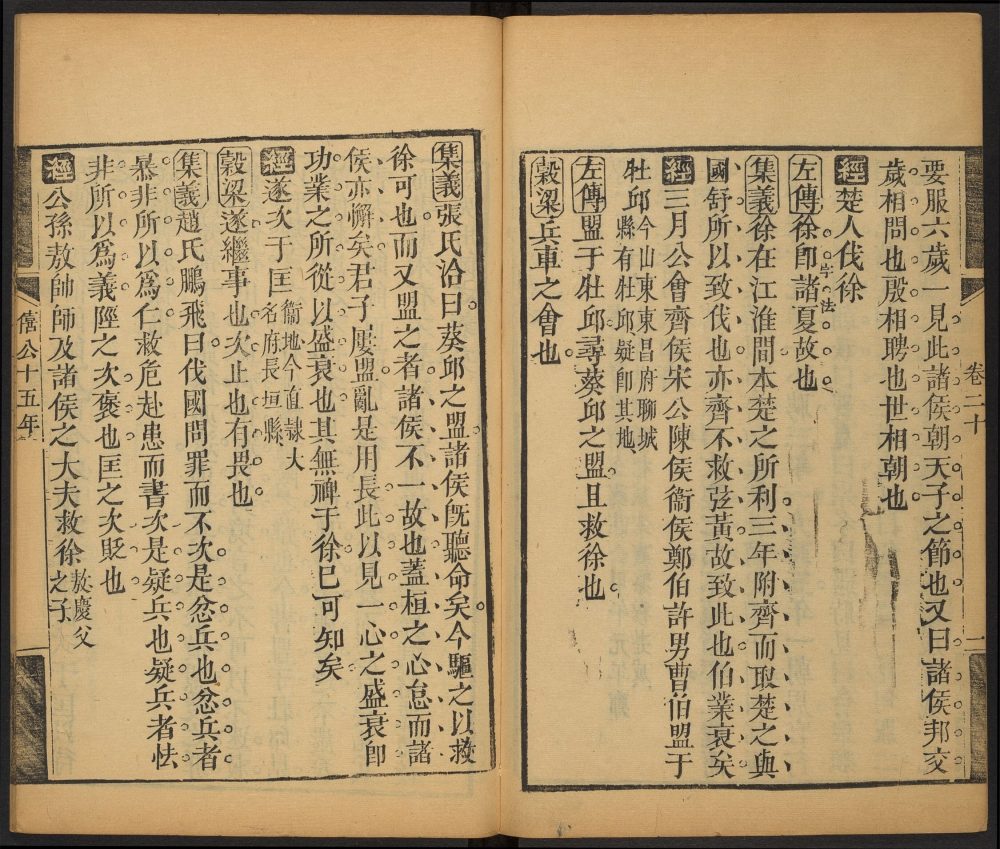 卷二十
一
要服六歲一見此諸侯朝天子之節也又曰諸侯邦交
歲相問也殷相聘也世相朝也
經楚人伐徐
左傳徐卽諸夏故也
字法
集義徐在江淮間本楚之所利三年附齊而取楚之與
國舒所以致伐也亦齊不救弦黃故致此也伯業衰矣
經三月公會齊侯宋公陳侯衞侯鄭伯許男曹伯盟于
牡邱今山東東昌府聊城
縣有牡邱疑卽其地
左傳盟于牡邱尋葵邱之盟且救徐也
穀梁兵車之會也
集義張氏洽曰葵邱之盟諸侯旣聽命矣今驅之以救
徐可也而又盟之者諸侯不一故也蓋桓之心怠而諸
侯亦懈矣君子屢盟亂是用長此以見一心之盛衰卽
功業之所從以盛衰也其無裨于徐巳可知矣
經遂次于匡衞地今直隷大
名府長垣縣
穀梁遂繼事也次止也有畏也
集義趙氏鵬飛曰伐國問罪而不次是忿兵也忿兵者
暴非所以爲仁救危赴患而書次是疑兵也疑兵者怯
非所以爲義陘之次褒也匡之次貶也
經公孫敖帥師及諸侯之大夫救徐敖慶父
之子
僖公十五年